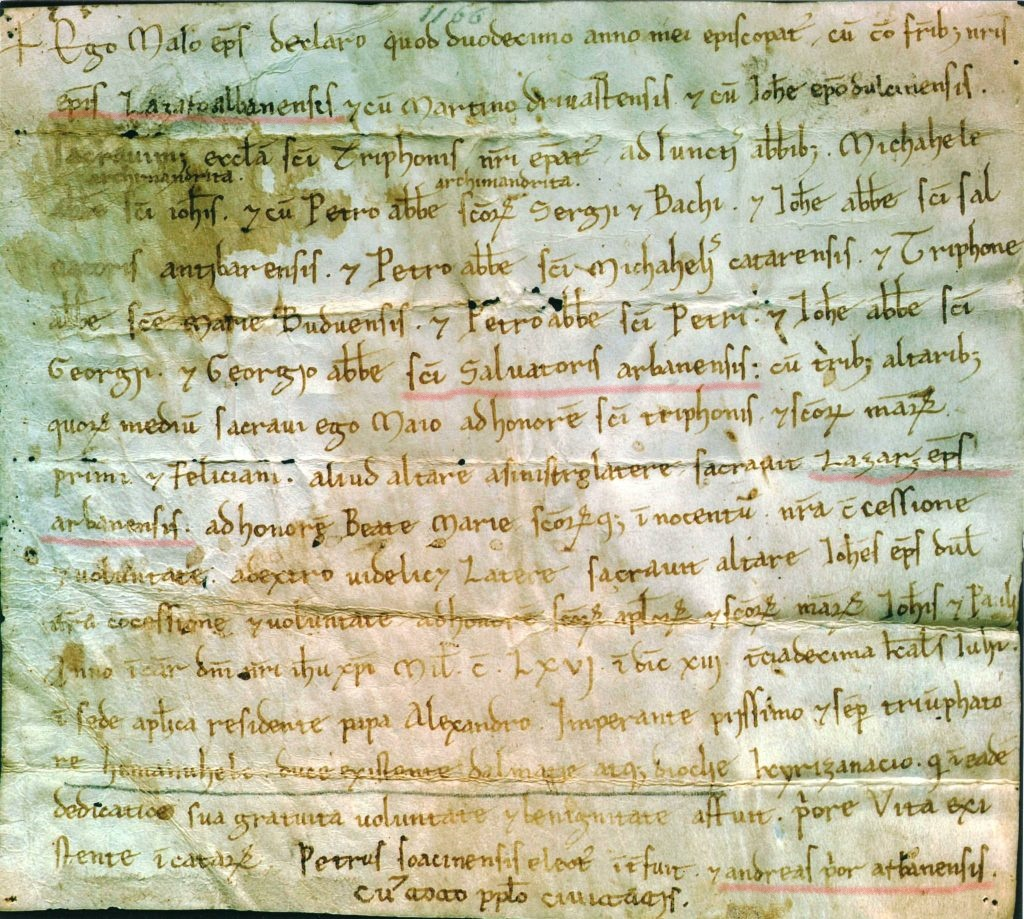 1166
+ Ego Maio ep̄s declaro quod duodecimo anno mei episcopat᷒, cū cō fr̄ib; nr̄is
ep̄is Lazaro albanensis ⁊ cū Martino drivastensis ⁊ cū Ioh̄e ep̄o dulciniensis.
sacravim; eccl̄ā sc̄i Triphonis nr̄i ep̄at᷒, adiuncti᷒ ab̄bib; Michahele
archimandrita. archimandrita.
sc̄i ioh̄is. ⁊ cū Petro ab̄be sc̄oꝝ Sergii ⁊ Bachi. ⁊ Ioh̄e ab̄be sc̄i sal
vatoris antibarensis. ⁊ Petro ab̄be sc̄i Michaheli᷒ catarensis. ⁊ Triphone
ab̄be sc̄e Marie Buduensis. ⁊ Petro ab̄be sc̄i Petri. ⁊ Ioh̄e ab̄be sc̄i
Georgii. ⁊ Georgio ab̄be sc̄i Salvatoris arbanensis: cū trib; altarib;
quoꝝ mediū sacravi ego Maio ad honorē sc̄i triphonis. ⁊ sc̄oꝝ mar̄ꝝ
primi ⁊ Feliciani. aliud altare a sinistro latere sacravit Lazar᷒ ep̄s
arbanensis. ad honorē Beate Marie sc̄oꝝq; īnocentū. nr̄a c̄cessione
⁊ voluntate. a dextro videlic⁊ Latere sacravit altare Ioh̄es ep̄s dul̄
nr̄a cōcessione ⁊ voluntate ad honorē sc̄oꝝ apl̄oꝝ ⁊ sc̄oꝝ marꝝ Ioh̄is ⁊ Pauli
Anno īcar̄ dn̄i nr̄i ih̄u xp̄i Mil̄. c̄. LXVI. īdic̄ XIII. t̄ciadecima kal̄s Iulii.
ī sede apl̄ica residente papa Alexandro. Imperante piissimo ⁊ sēp triūphato
re hemanuhele. duce existente dalmatie atq; dioclie kyrizanacio. q̇ ī eadē
dedicatiōe sua gratuita voluntate ⁊ benignitate affuit. p̄ore Vita exi
stente ī cataꝝ. Petrus soacinensis elect᷒ īt̄fuit. ⁊ andreas p̄or arbanensis.
Cū toto pp̄lo civitatis.